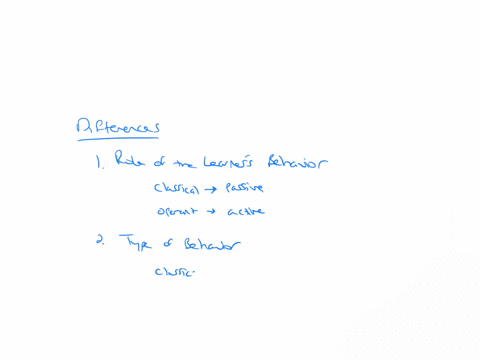 Differences
1. Role of the Learner's Behavior
Classical → Passive
operant → active
2. Type of Behavior
classic